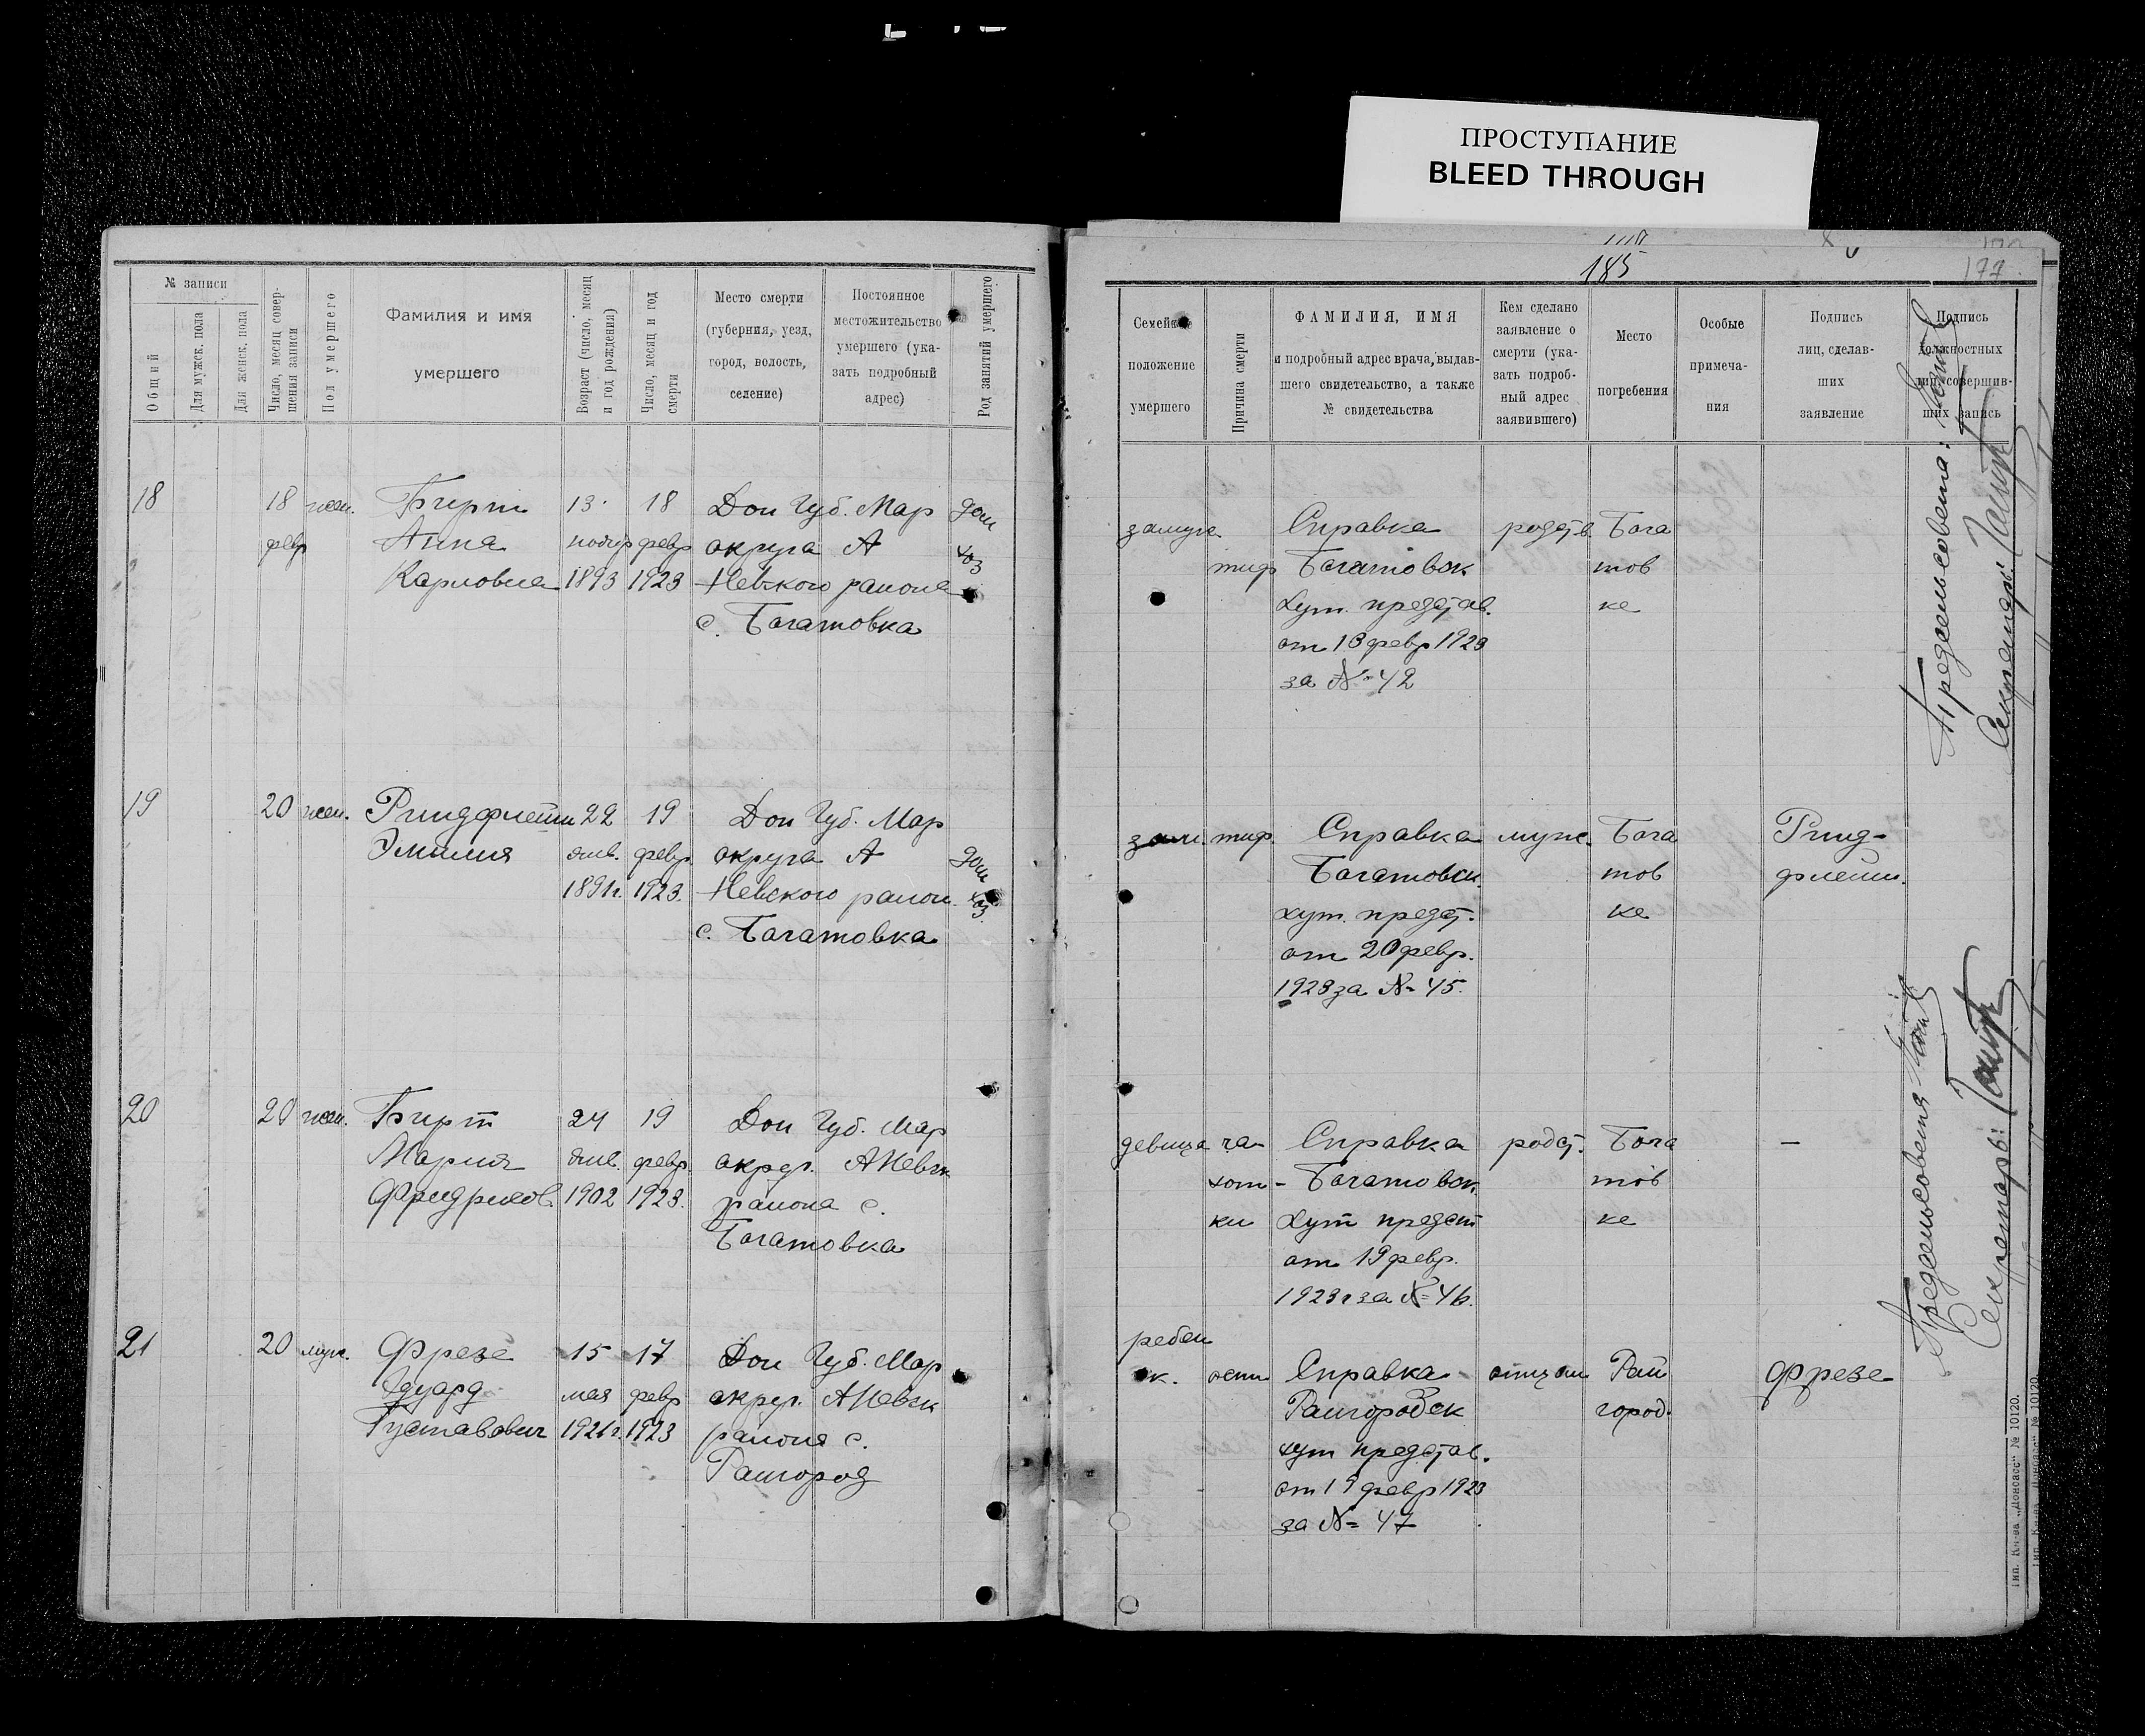 ПРОСТУПАНИЕ
BLEED THROUGH
185
177
№ записи
Общий
Для мужск. пола
Для женск. пола
Число, месяц совер-
шения записи
Пол умершего
Фамилия и имя
умершего
Возраст (число, месяц
и год рождения)
Число, месяц и год
смерти
Место смерти
(губерния, уезд,
город, волость,
селение)
Постоянное
местожительство
умершего (ука-
зать подробный
адрес)
Род занятий умершего
Семейное
положение
умершего
Причина смерти
ФАМИЛИЯ, ИМЯ
и подробный адрес врача, выдав-
шего свидетельство, а также
№ свидетельства
Кем сделано
заявление о
смерти (ука-
зать подроб-
ный адрес
заявившего)
Место
погребения
Особые
примеча-
ния
Подпись
лиц, сделав-
ших
заявление
Подпись
должностных
лиц, совершив-
ших запись
18 18 жен. Бирт 13 18 Дон Губ. Мар дом
февр Анна февр округа А хоз
Карловна 1893 1923 Невского района
с. Богатовка
замуж Справка родств. Бога
тиф Богатовск тов
хут. представ. ке
от 18 февр 1923
за № 42
19 20 жен. Риндфлейш 22 19 Дон Губ. Мар
Эмилия янв. февр. округа А дом
1891г. 1923. Невского район. хоз.
с. Богатовка
зам. тиф. Справка муж. Бога Ринд-
Богатовск. тов флейш.
хут. предст. ке
от 20 февр.
1923 за № 45.
20 20 жен. Бирт 24 19 Дон Губ. Мар
Мария янв. февр. округ. А Невск
Фридрихов. 1902 1923. района с.
Богатовка
девица ча- Справка родст. Бога —
хот- Богатовск. тов
ки хут предст ке
от 19 февр.
1923г за № 46.
21 20 муж. Фрезе 15 17 Дон Губ. Мар
Эдуард мая февр округ. А Невск
Густавович 1921г. 1923 района с.
Райгород
ребен
ок. осп Справка отцом Рай Фрезе
Райгородск город.
хут представ.
от 19 февр 1923
за № 47
Предсельсовета:
Секретарь:
Предсельсовета
Секретарь:
„Донбасс“ № 10120.
№ 10120.